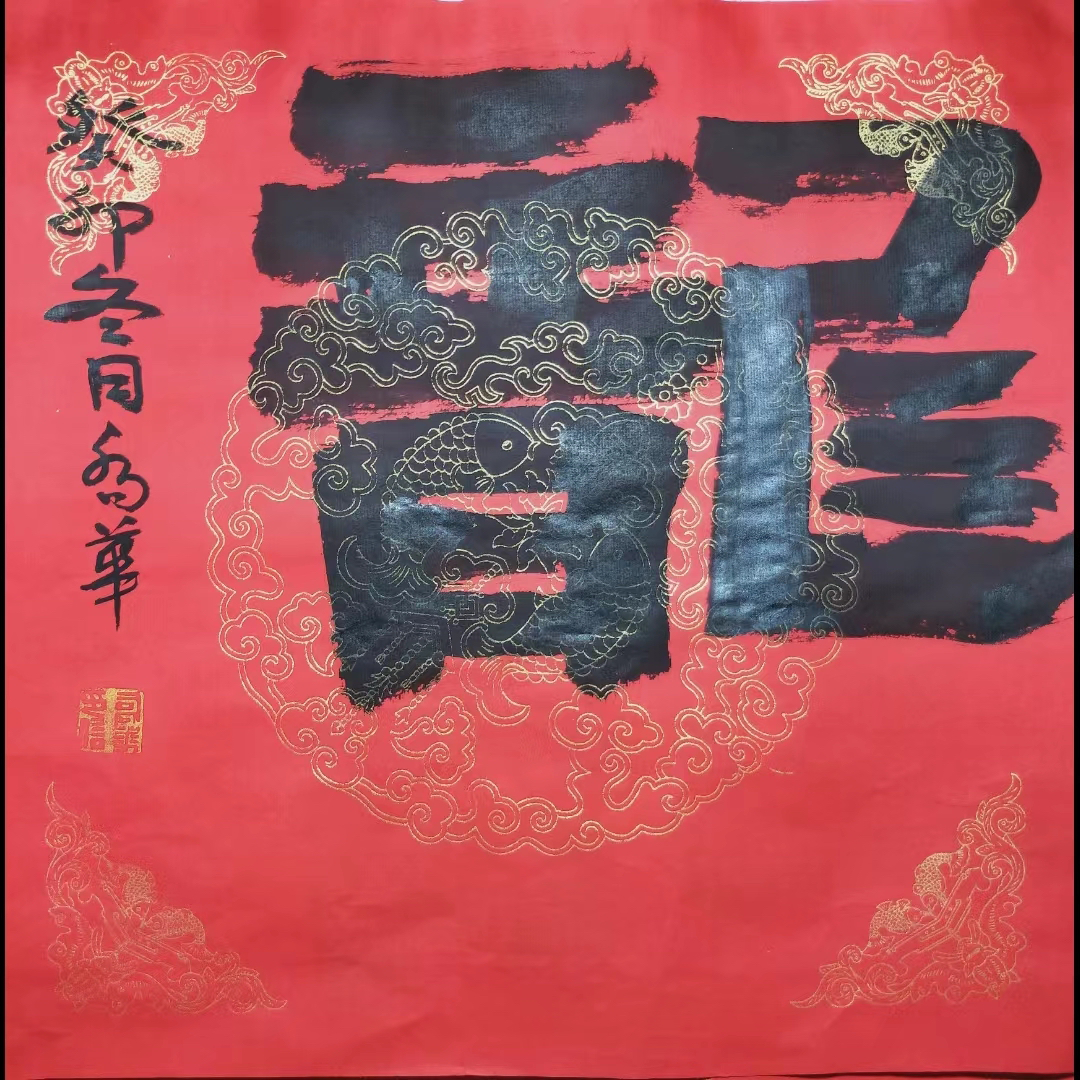 龍
癸卯冬月喬華